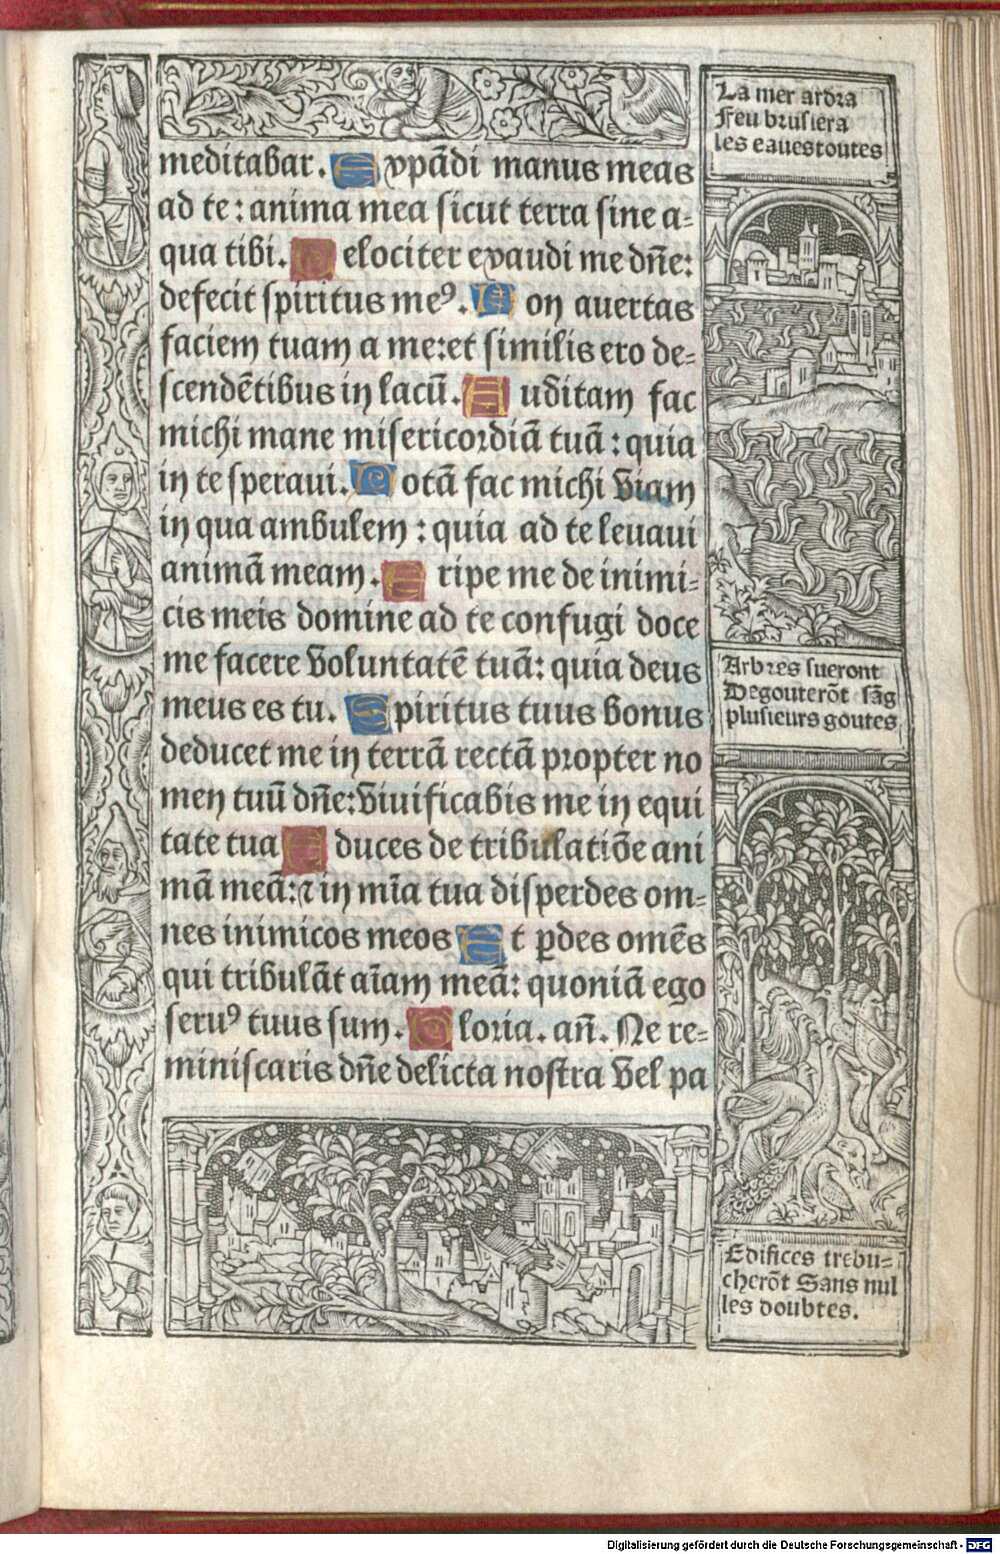 meditabar. Expādi manus meas
ad te: anima mea sicut terra sine a-
qua tibi. Velociter exaudi me dn̄e:
defecit spiritus meꝰ. Non auertas
faciem tuam a me: et similis ero de-
scendētibus in lacū. Auditam fac
michi mane misericordiā tuā: quia
in te speraui. Notā fac michi viam
in qua ambulem: quia ad te leuaui
animā meam. Eripe me de inimi-
cis meis domine ad te confugi doce
me facere voluntatē tuā: quia deus
meus es tu. Spiritus tuus bonus
deducet me in terrā rectā propter no
men tuū dn̄e: viuificabis me in equi
tate tua Educes de tribulatiōe ani
mā meā: ⁊ in mīa tua disperdes om-
nes inimicos meos Et ꝑdes omēs
qui tribulāt aīam meā: quoniā ego
seruꝰ tuus sum. Gloria. an̄. Ne re-
miniscaris dn̄e delicta nostra vel pa
La mer ardra
Feu brusiera
les eaues toutes
Arbres sueront
Degouterōt sāg
plusieurs goutes
Edifices trebu-
cherōt Sans nul
les doubtes.
Digitalisierung gefördert durch die Deutsche Forschungsgemeinschaft - DFG